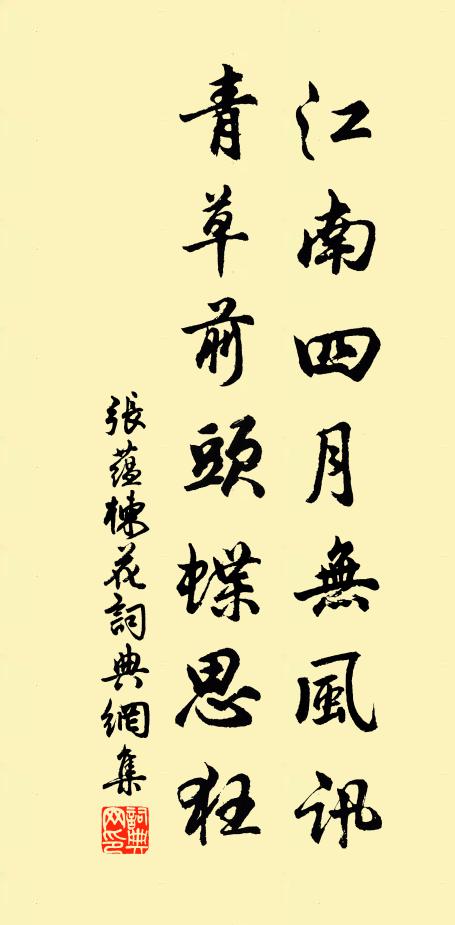 江南四月無風訊
青草前頭蝶思狂
張蘊楝花詞典網集
詞典網印